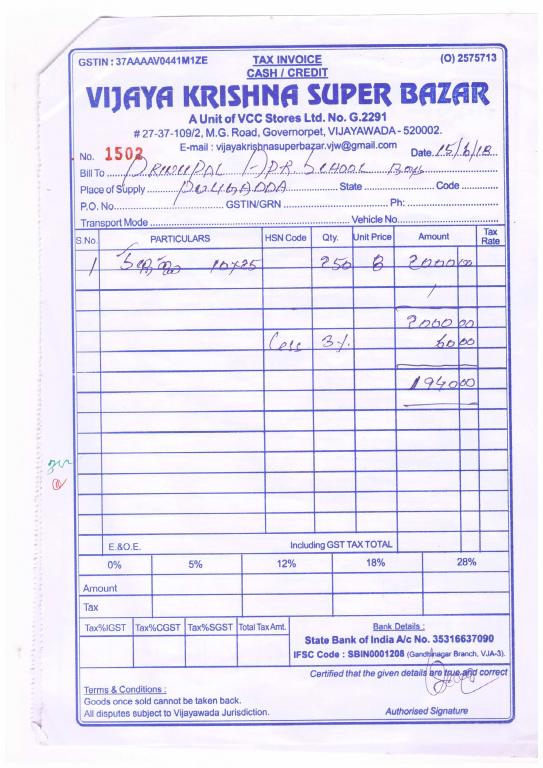 GSTIN : 37AAAAV0441M1ZE TAX INVOICE (O) 2575713
CASH / CREDIT
VIJAYA KRISHNA SUPER BAZAR
A Unit of VCC Stores Ltd. No. G.2291
# 27-37-109/2, M.G. Road, Governorpet, VIJAYAWADA - 520002.
E-mail : vijayakrishnasuperbazar.vjw@gmail.com
No. 1502 Date 15/6/18
Bill To PRINCIPAL APR SCHOOL Boys
Place of Supply State Code
P.O. No. GSTIN/GRN Ph:
Transport Mode Vehicle No.
S.No. PARTICULARS HSN Code Qty. Unit Price Amount Tax Rate
1 10x25 250 8 2000 00
2000 00
Less 3% 60 00
1940 00
E.&O.E. Including GST TAX TOTAL
0% 5% 12% 18% 28%
Amount
Tax
Tax%IGST Tax%CGST Tax%SGST Total Tax Amt.
Bank Details :
State Bank of India A/c No. 35316637090
IFSC Code : SBIN0001208 (Gandhinagar Branch, VJA-3).
Certified that the given details are true and correct
Terms & Conditions :
Goods once sold cannot be taken back.
All disputes subject to Vijayawada Jurisdiction.
Authorised Signature